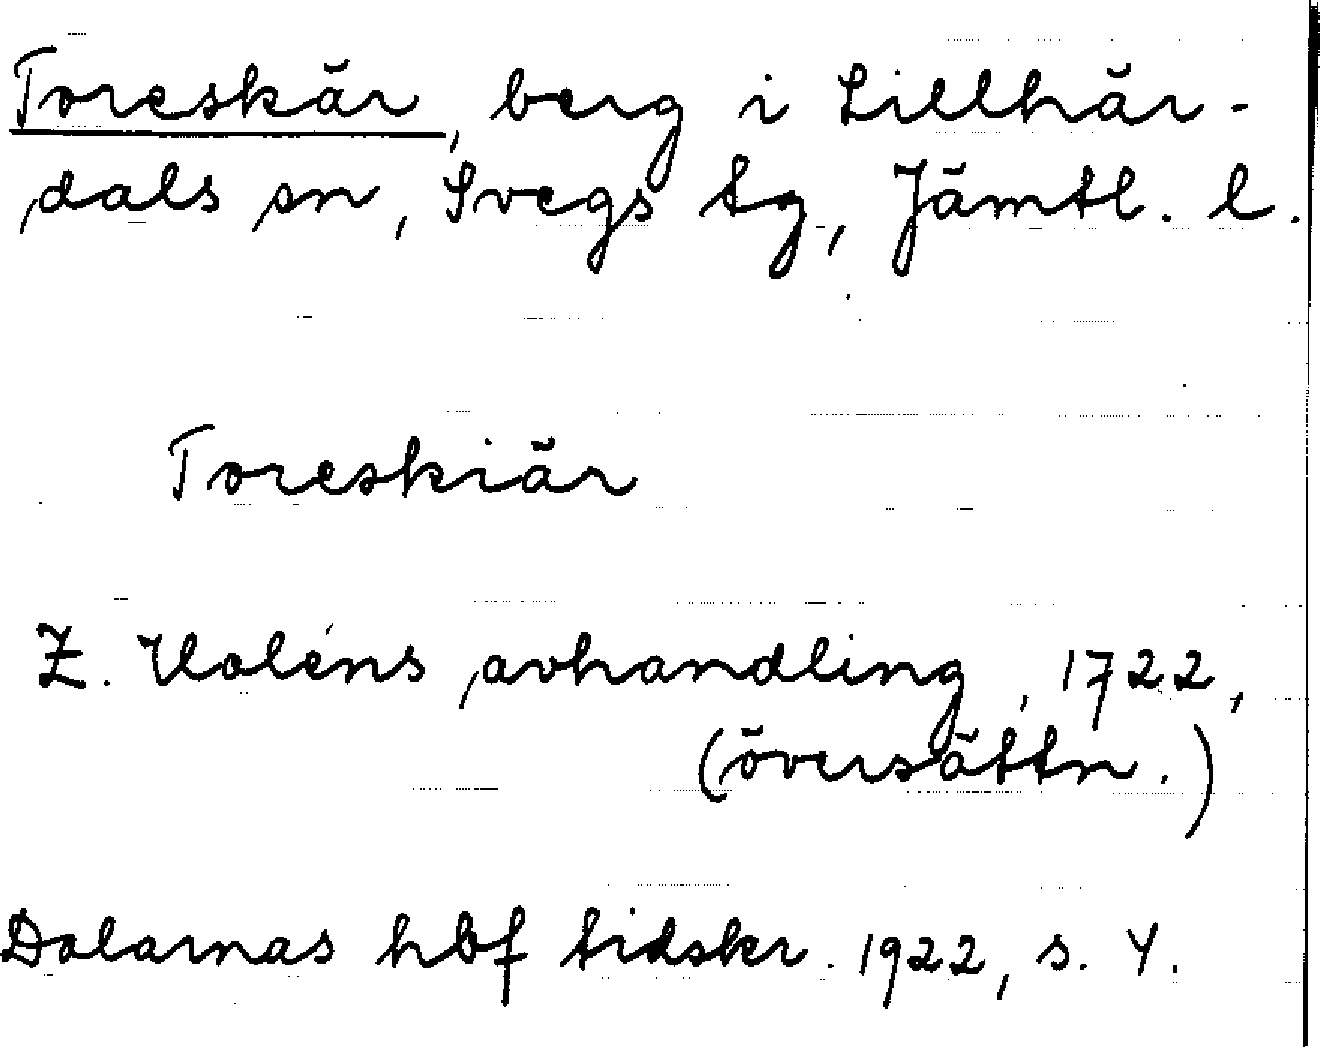 Toreskär, berg i Lillhär-
dals sn, Svegs tg, Jämtl. l.
Toreskiär
Z. Holéns avhandling, 1722,
(översättn.)
Dalarnas hbf tidskr. 1922, s. 4.